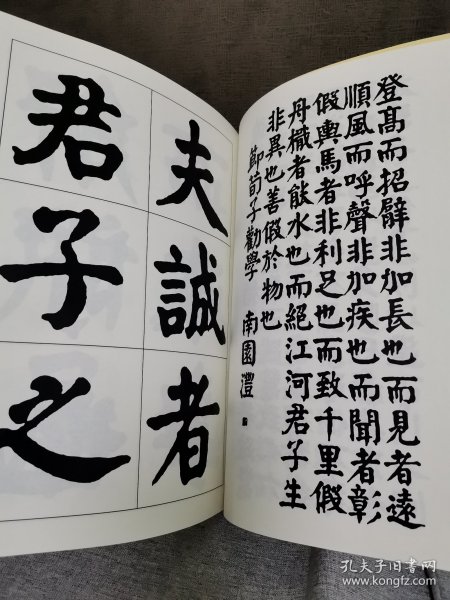 登髙而招臂非加長也而見者遠
順風而呼聲非加疾也而聞者彰
假輿馬者非利足也而致千里假
舟檝者能水也而絕江河君子生
非異也善假於物也
節荀子勸學 南園灃
夫誠者
君子之
孔夫子旧书网
www.kongfz.com